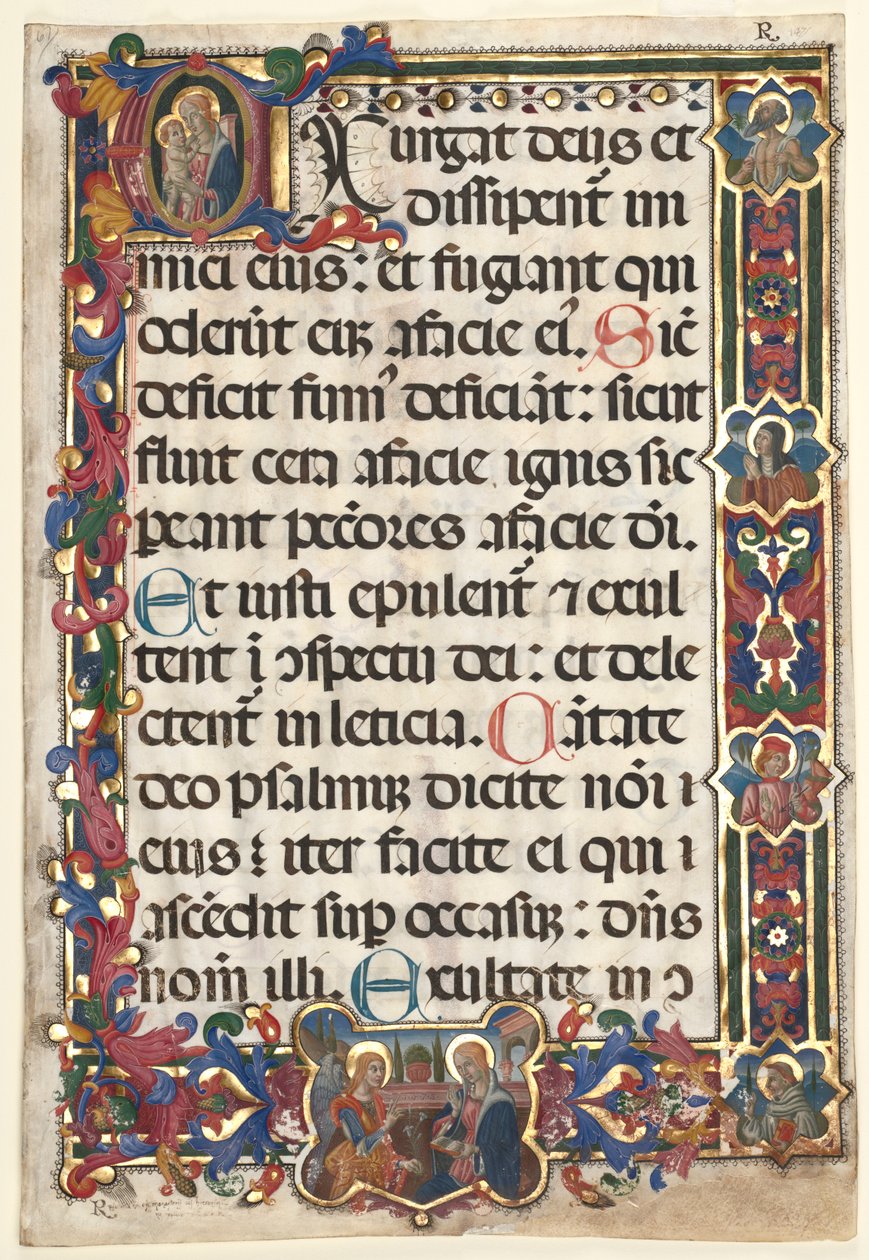 R.
EXurgat deus et
dissipent᷑ ini
mici eius: et fugiant qui
oderūt euꝫ afacie eiꝰ. Sic̄
deficit fumꝰ deficiāt: sicut
fluit cera afacie ignis sic
ꝑeant pecc̄ores afacie dēi.
Et iusti epulent᷑ ⁊ exul
tent ī ↄspectu dei: et dele
ctent᷑ in leticia. Cātate
deo psalmuꝫ dicite nōi i
eius: iter facite ei qui i
ascēdit suꝑ occasuꝫ: dn̄s
nom̄ illi. Exultate in ↄ